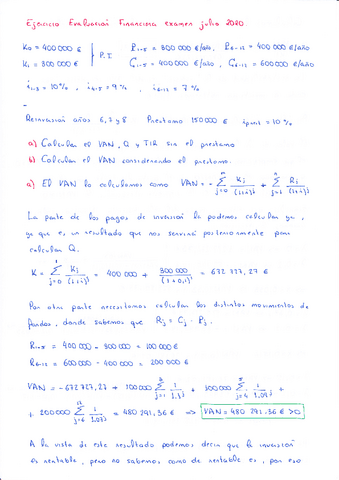 Ejercicio Evaluación Financiera examen julio 2020
K₀ = 400 000 € | P.I. P₁₋₅ = 300 000 €/año, P₆₋₁₂ = 400 000 €/año
K₁ = 300 000 € | C₁₋₅ = 400 000 €/año, C₆₋₁₂ = 600 000 €/año
i₁₋₃ = 10%, i₄₋₅ = 9%, i₆₋₁₂ = 7%
-
Reinversión años 6, 7 y 8 Préstamo 150 000 € i = 10%
a) Calcular el VAN, Q y TIR sin el préstamo
b) Calcular el VAN considerando el préstamo.
a) El VAN lo calculamos como VAN = - Σ Kj/(1+i)^j + Σ Rj/(1+i)^j
La parte de los pagos de inversión la podemos calcular ya,
ya que es un resultado que nos servirá posteriormente para
calcular Q.
K = Σ Kj/(1+i)^j = 400 000 + 300 000/(1+0,1)^1 = 672 727,27 €
Por otra parte necesitamos calcular los distintos movimientos de
fondos, donde sabemos que Rj = Cj - Pj.
R₁₋₅ = 400 000 - 300 000 = 100 000 €
R₆₋₁₂ = 600 000 - 400 000 = 200 000 €
VAN = -672 727,27 + 100 000 Σ 1/1,1^j + 100 000 Σ 1/1,09^j +
+ 200 000 Σ 1/1,07^j = 480 791,36 € ⇒ VAN = 480 791,36 € > 0
A la vista de este resultado podemos decir que la inversión
es rentable, pero no sabemos como de rentable es, por eso